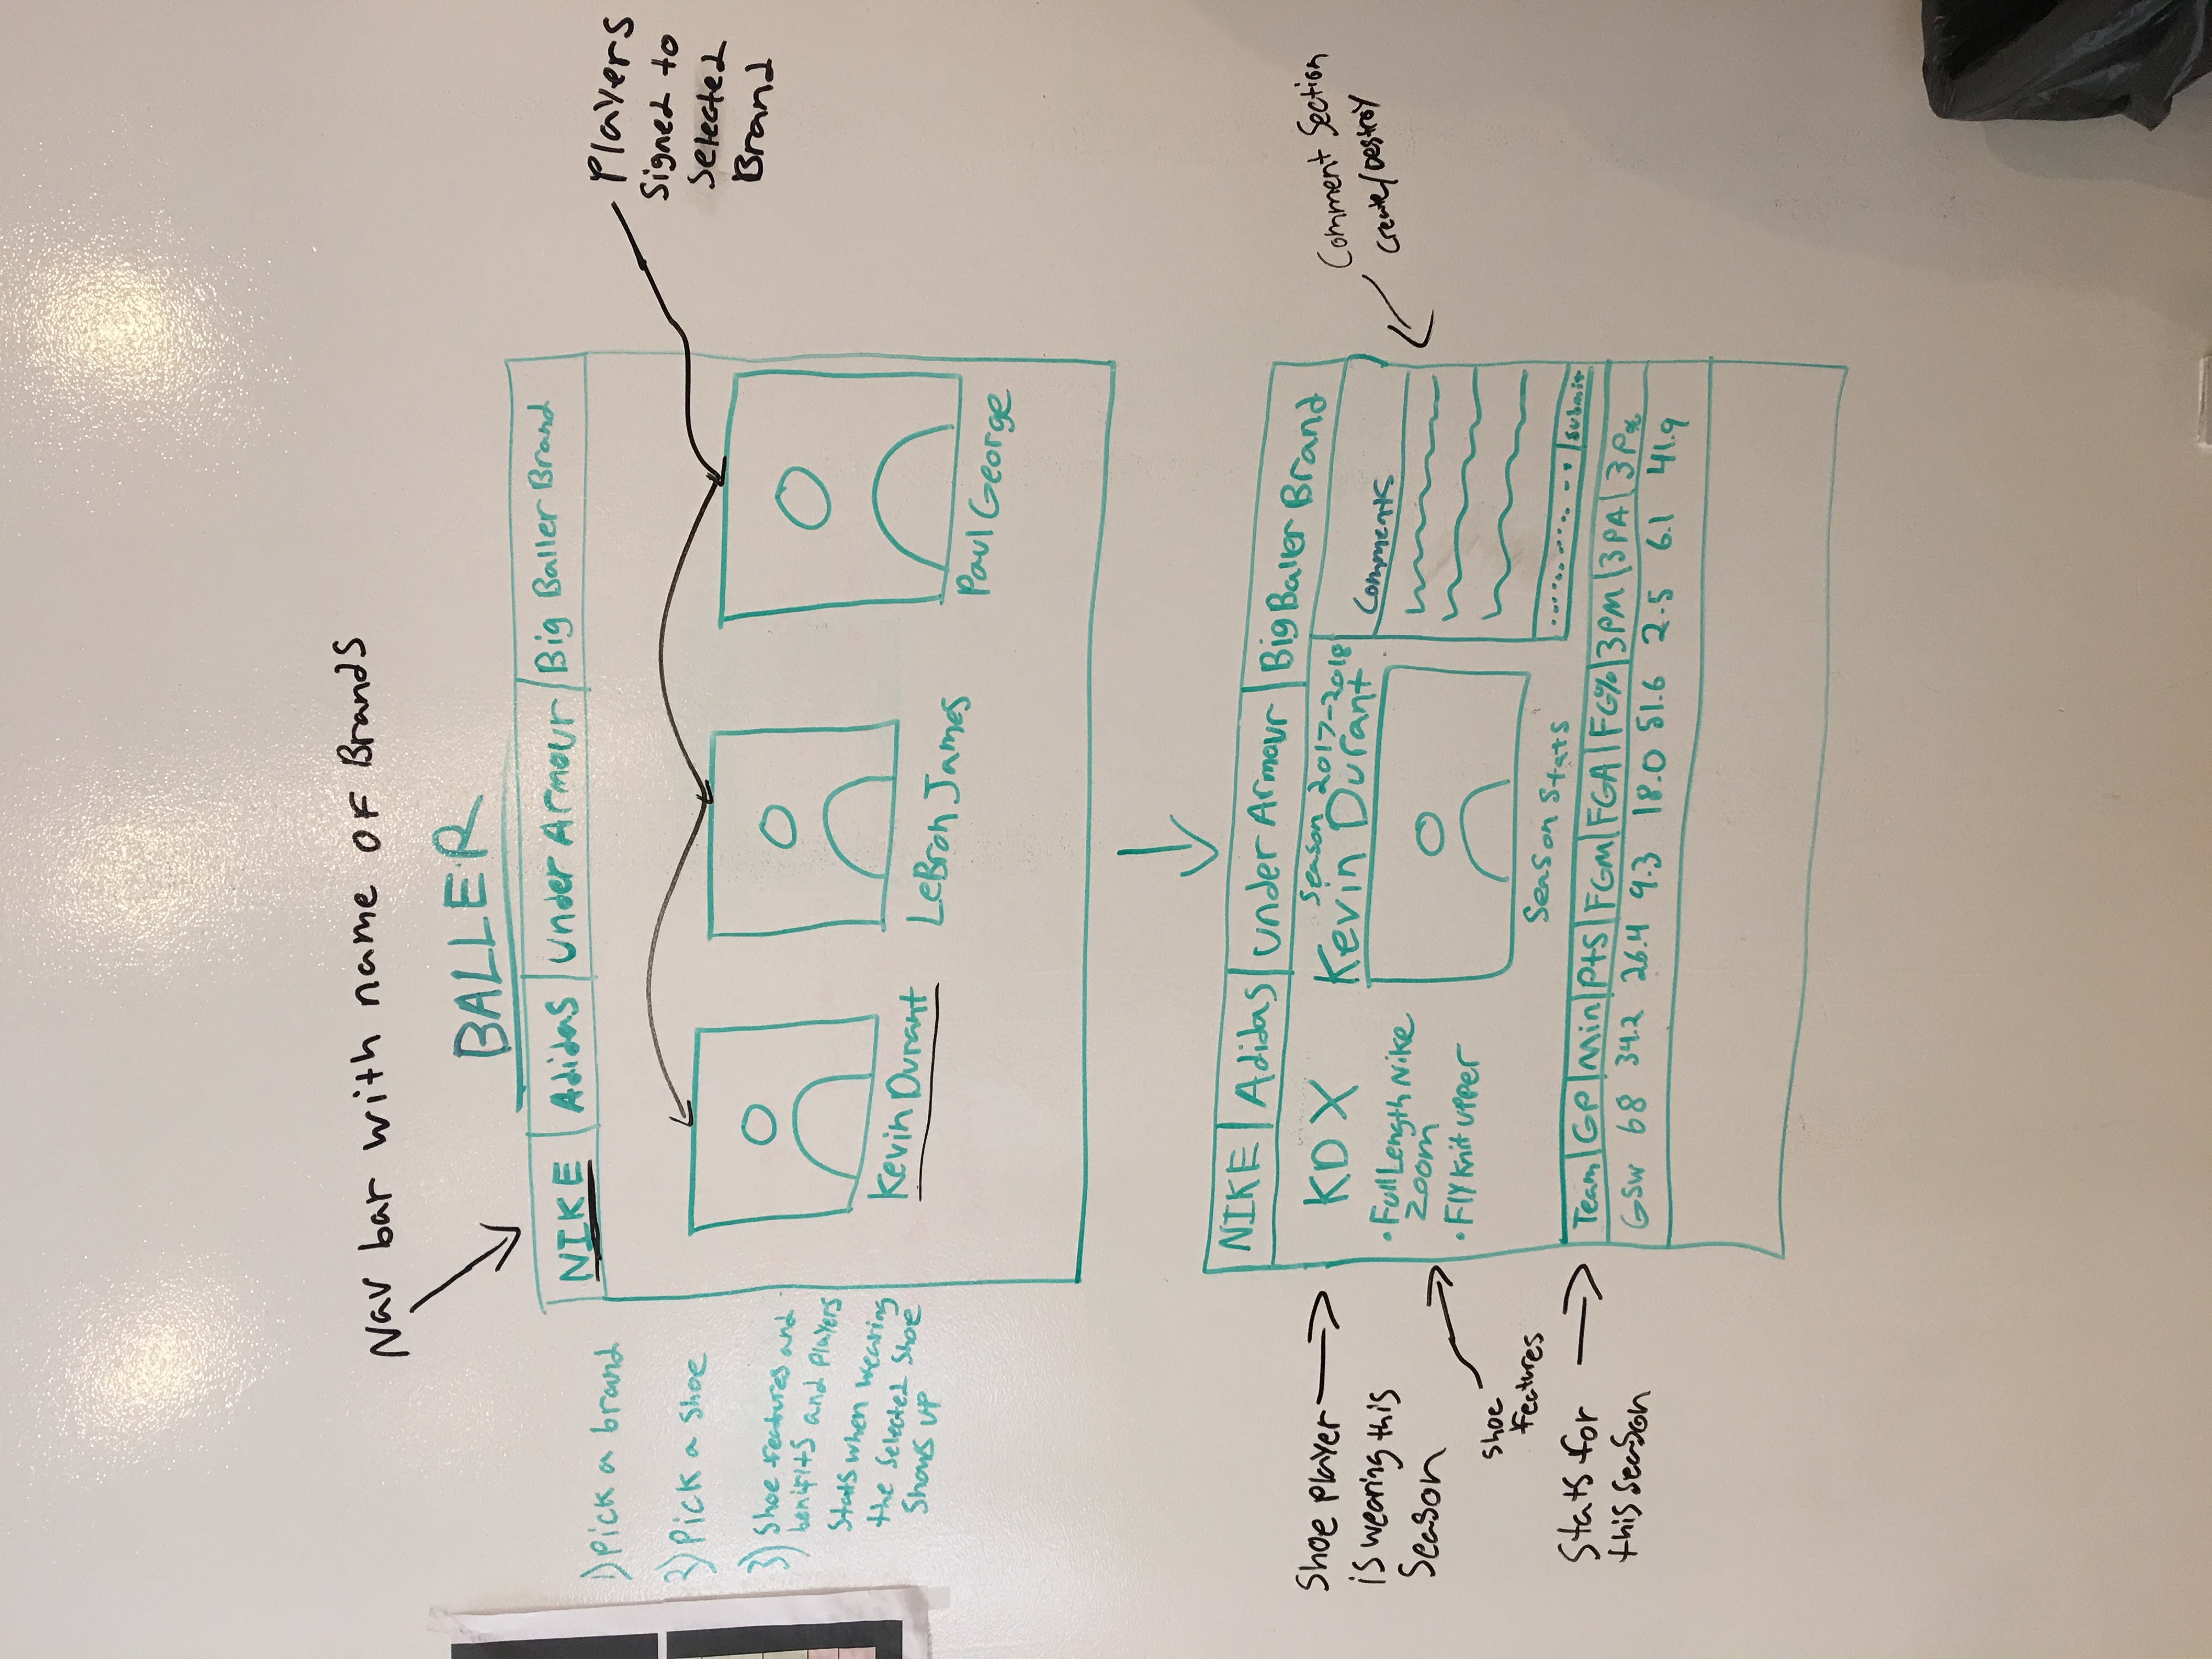 Nav bar with name of Brands
BALLER
NIKE Adidas Under Armour Big Baller Brand
1) Pick a brand
2) Pick a shoe
3) Shoe features and
benifits and players
Stats when wearing
the selected shoe
Shows up
Players
Signed to
Selected
Brand
Kevin Durant
LeBron James
Paul George
NIKE Adidas Under Armour Big Baller Brand
Shoe player
is wearing this
Season
Shoe
features
Stats for
this season
KD X
• Full Length Nike
Zoom
• Fly Knit upper
Season 2017-2018
Kevin Durant
Season Stats
Comments
Submit
Comment Section
Create/Destroy
Team GP Min Pts FGM FGA FG% 3PM 3PA 3P%
GSW 68 34.2 26.4 9.3 18.0 51.6 2.5 6.1 41.9